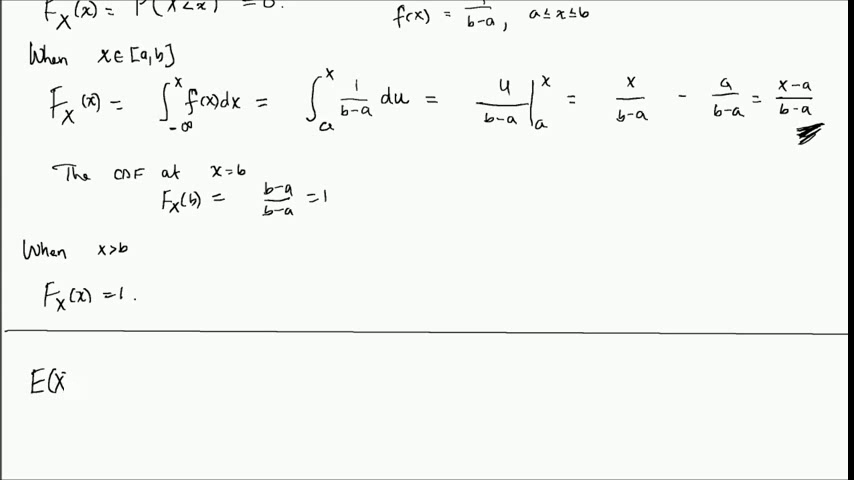 F_X(x) = P(X<x) = 0.
f(x) = 1/(b-a), a≤x≤b
When x∈[a,b]
F_X(x) = ∫_{-∞}^{x} f(x)dx = ∫_{a}^{x} 1/(b-a) du = u/(b-a) |_{a}^{x} = x/(b-a) - a/(b-a) = (x-a)/(b-a)
The CDF at x=b
F_X(b) = (b-a)/(b-a) = 1
When x>b
F_X(x) = 1.
E(X